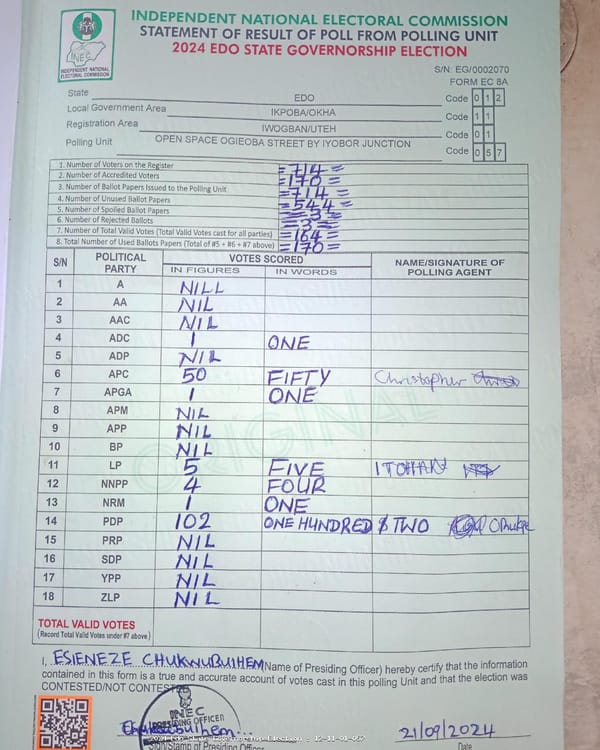 INDEPENDENT NATIONAL ELECTORAL COMMISSION
STATEMENT OF RESULT OF POLL FROM POLLING UNIT
2024 EDO STATE GOVERNORSHIP ELECTION
INEC
INDEPENDENT NATIONAL
ELECTORAL COMMISSION
S/N: EG/0002070
FORM EC 8A
State EDO Code 0 1 2
Local Government Area IKPOBA/OKHA Code 1 1
Registration Area IWOGBAN/UTEH Code 0 1
Polling Unit OPEN SPACE OGIEOBA STREET BY IYOBOR JUNCTION Code 0 5 7
1. Number of Voters on the Register =714=
2. Number of Accredited Voters =170=
3. Number of Ballot Papers Issued to the Polling Unit =714=
4. Number of Unused Ballot Papers =544=
5. Number of Spoiled Ballot Papers =3=
6. Number of Rejected Ballots =3=
7. Number of Total Valid Votes (Total Valid Votes cast for all parties) =164=
8. Total Number of Used Ballots Papers (Total of #5 + #6 + #7 above) =170=
S/N POLITICAL PARTY VOTES SCORED NAME/SIGNATURE OF POLLING AGENT
IN FIGURES IN WORDS
1 A NILL
2 AA NIL
3 AAC NIL
4 ADC 1 ONE
5 ADP NIL
6 APC 50 FIFTY Christopher
7 APGA 1 ONE
8 APM NIL
9 APP NIL
10 BP NIL
11 LP 5 FIVE ITOHAN
12 NNPP 4 FOUR
13 NRM 1 ONE
14 PDP 102 ONE HUNDRED & TWO
15 PRP NIL
16 SDP NIL
17 YPP NIL
18 ZLP NIL
ORIGINAL
TOTAL VALID VOTES
(Record Total Valid Votes under #7 above)
I, ESIENEZE CHUKWUBUIHEM (Name of Presiding Officer) hereby certify that the information
contained in this form is a true and accurate account of votes cast in this polling Unit and that the election was
CONTESTED/NOT CONTESTED
INEC
PRESIDING OFFICER
21/09/2024
Sign/Stamp of Presiding Officer Date